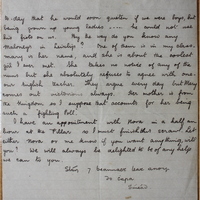 to-day that he would soon quieten if we were boys, but
being grown up young ladies ..... he could not use
his fists on us. By the way do you know any
Maloneys in Dingle? One of them is in my class.
Mary is her name and she is about the coolest
girl I ever met. She takes no notice of any of the
nuns but she absolutely refuses to agree with one
our English teacher. They argue every day but Mary
comes out victorious always. Her mother is from
the Kingdom so I suppose that accounts for her being
such a fighting Poll.
I have an appointment with Nora in a half an
hour at the Pillar so I must finish this scrawl. Let
either Nora or me know if you want anything with
you? We will always be delighted to be of any help
we can to you.
7